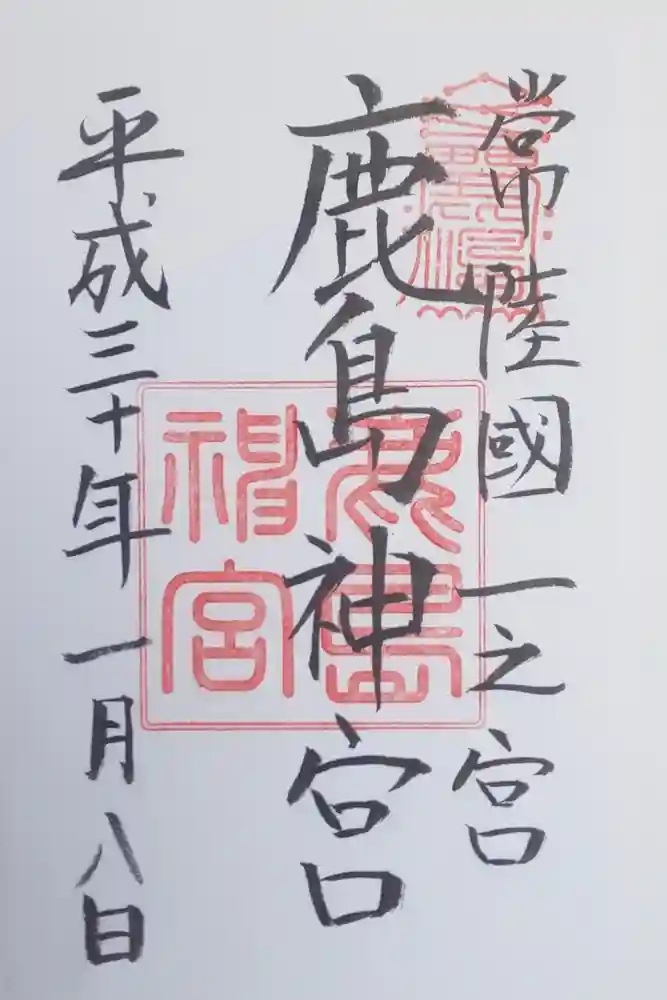 常陸國一之宮
鹿島神宮
平成三十年一月八日
鹿島
神宮